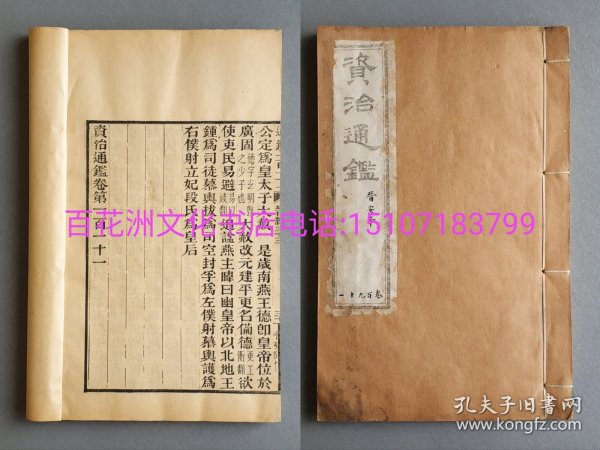 公定爲皇太子大赦 是歲南燕王德卽皇帝位於
廣固 大赦改元建平更名備德更工衡翻欲
使吏民易避 追諡燕主暐曰幽皇帝以北地王
鍾爲司徒慕輿拔爲司空封孚爲左僕射慕輿護爲
右僕射立妃段氏爲皇后
資治通鑑卷第一百一十一
資治通鑑
晉
卷百九十一
百花洲文化书店电话:15107183799
孔夫子旧书网
www.kongfz.com